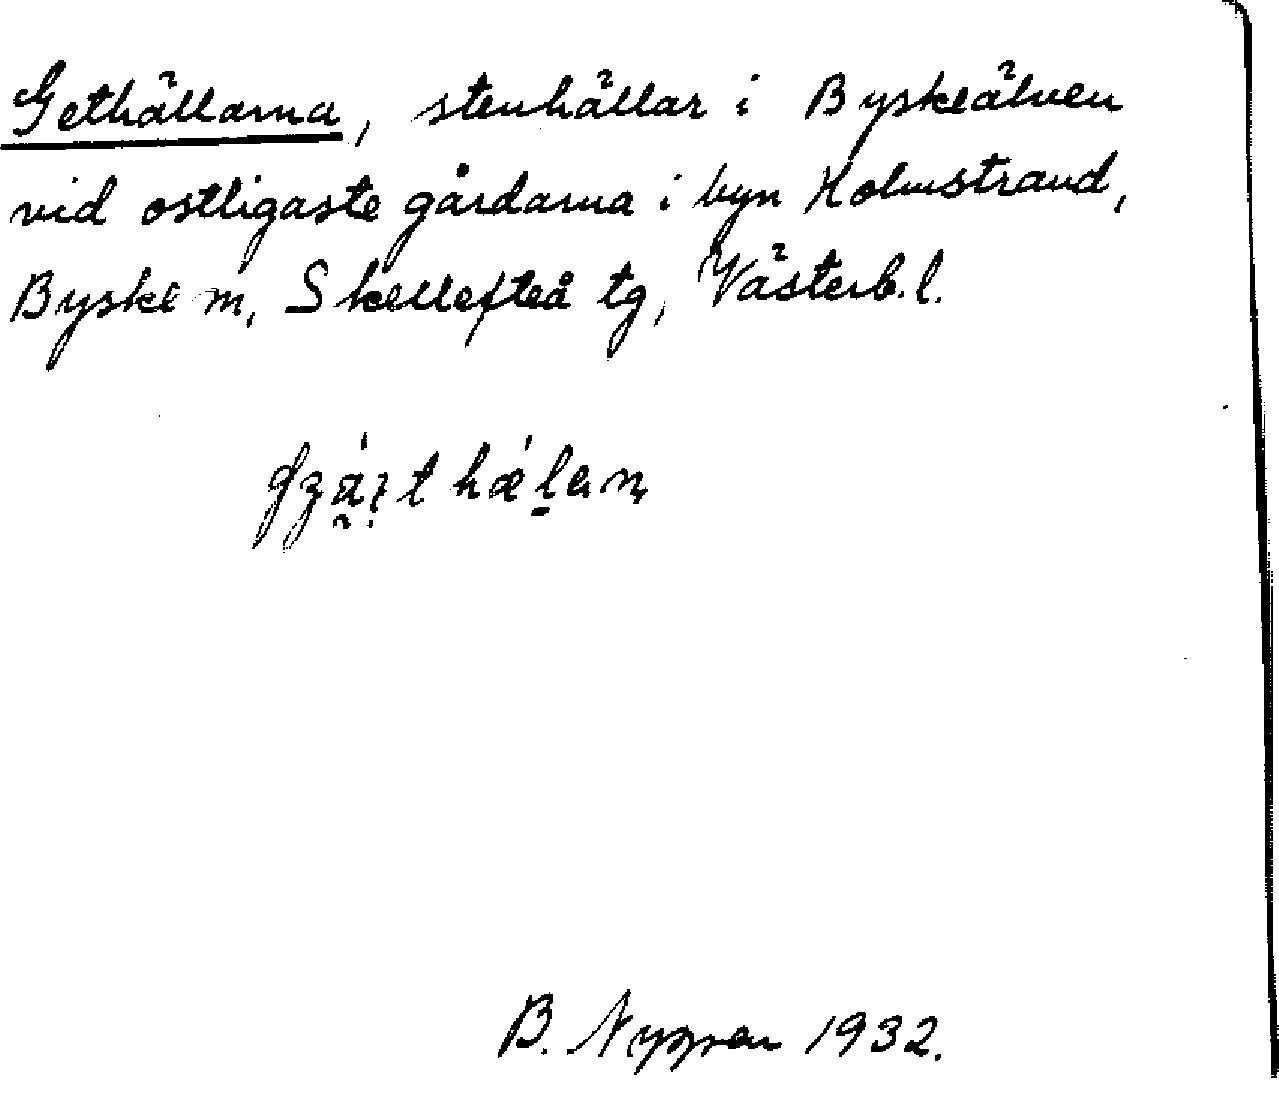 Gethällarna, stenhällar i Byskeälven
vid ostligaste gårdarna i byn Holmstrand,
Byske m, Skellefteå tg, Västerb. l.
B. Nyman 1932.